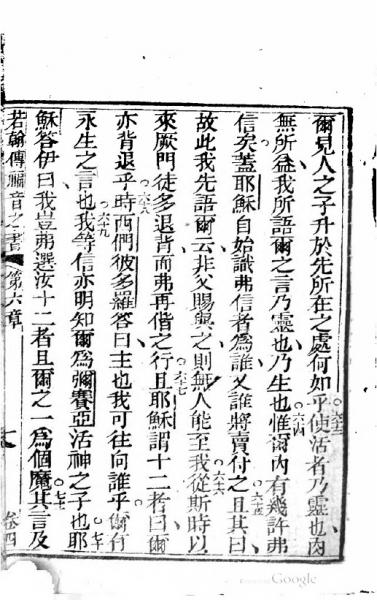 爾見人之子升於先所在之處何如乎六三使活者乃靈也肉
無所益我所語爾之言乃靈也乃生也六四惟爾內有幾許弗
信矣蓋耶穌自始識弗信者為誰又誰將賣付之六五且其曰
故此我先語爾云非父賜與之則鮮人能至我六六從斯時以
來厥門徒多退背而弗再偕之行六七且耶穌謂十二者曰爾
亦背退乎六八時西們彼多羅答曰主也我可往向誰乎爾有
永生之言也六九我等信亦明知爾為彌賽亞活神之子也七十耶
穌答伊曰我豈弗選汝十二者且爾之一為個魔七一其言及
若翰傳福音之書 第六章 卷四
Google